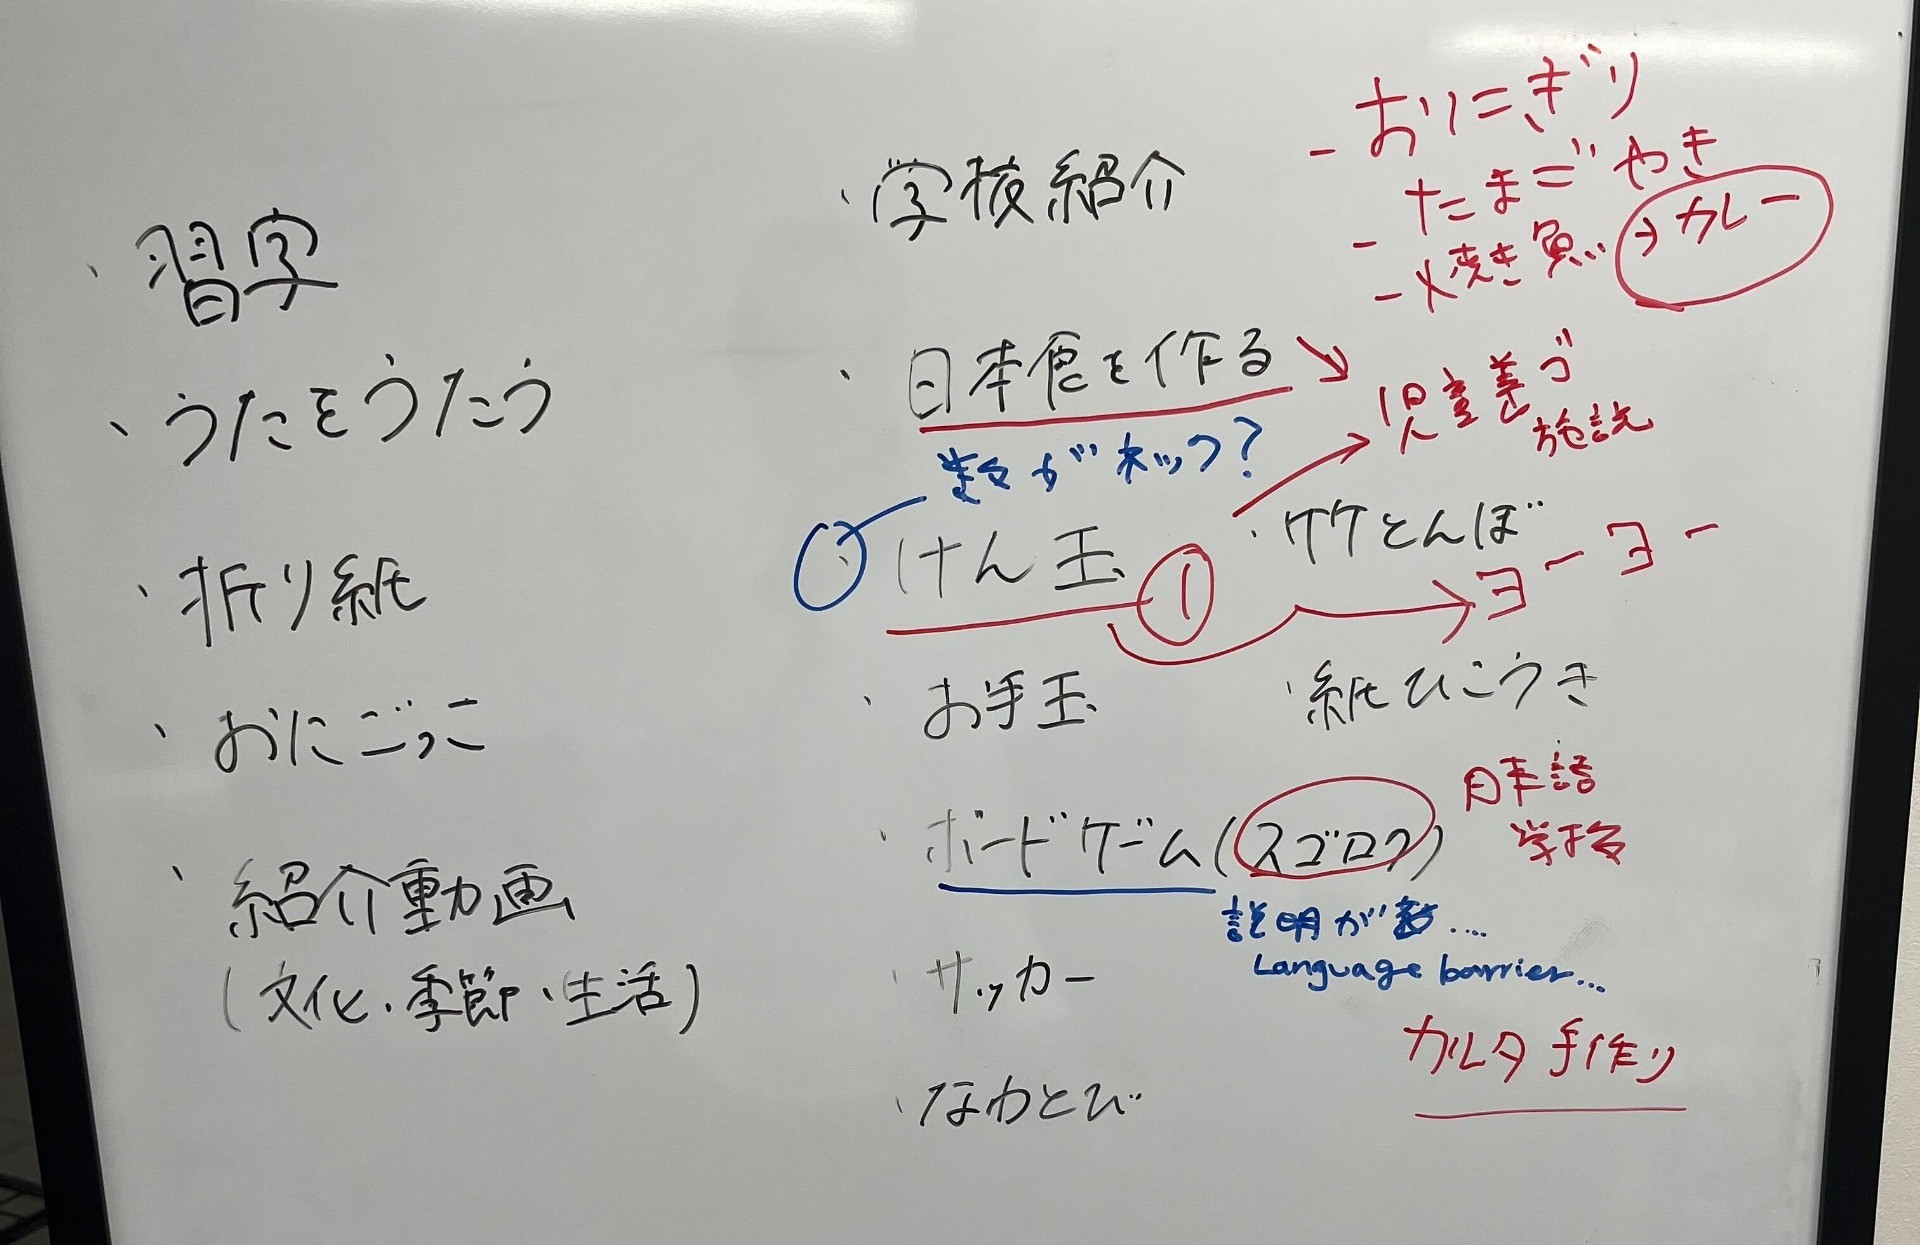 ・習字
・うたをうたう
・折り紙
・おにごっこ
・紹介動画
(文化・季節・生活)
・学校紹介
・日本食を作る
数がネック?
・けん玉 ①
・お手玉
・ボードゲーム(スゴロク)
説明が
Language barrier...
・サッカー
・なわとび
- おりにぎり
- たまごやき
- 焼き魚 → カレー
児童養ゴ
施設
・竹とんぼ
ヨーヨー
・紙ひこうき
日本語
学校
カルタ手作り